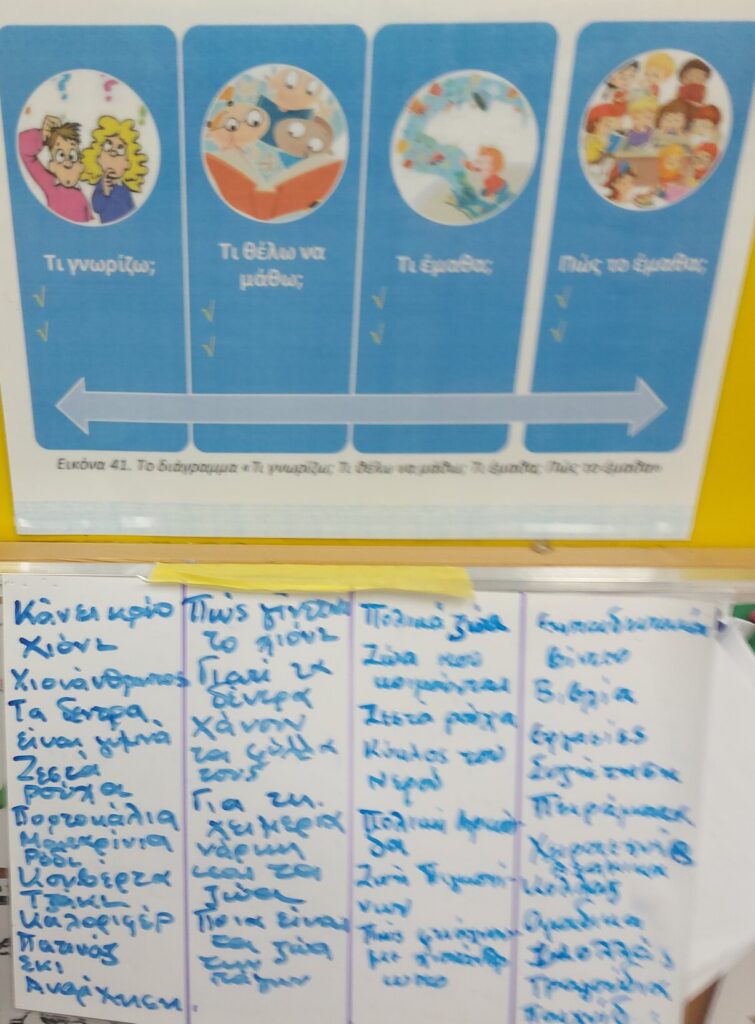 Τι γνωρίζω;
Τι θέλω να
μάθω;
Τι έμαθα;
Πώς το έμαθα;
Εικόνα 41. Το διάγραμμα «Τι γνωρίζω; Τι θέλω να μάθω; Τι έμαθα; Πώς το έμαθα»
Κάνει κρύο
Χιόνι
Χιονάνθρωπος
Τα δεντρα
είναι γυμνά
Ζεστά
ρούχα
Πορτοκάλια
Μανταρίνια
Ρόδι
Κουβέρτα
Τζάκι
Καλοριφέρ
Πατινάζ
Σκι
Πώς γίνεται
το χιόνι
Γιατί τα
δέντρα
χάνουν
τα φύλλα
τους
Για τη
χειμερία
νάρκη
και τα
ζώα
Ποια είναι
τα ζώα
των
πάγων
Πολικά ζώα
Ζώα που
κοιμούνται
Ζεστα ρούχα
Κύκλος του
Νερού
Πολική Αρκού-
δα
Ζωή
Πώς
Εκπαιδευτικά
Βίντεο
Βιβλία
Εργασίες
Συζήτηση
Πειράματα
Κολλάζ
Ομαδικα
Τραγούδια